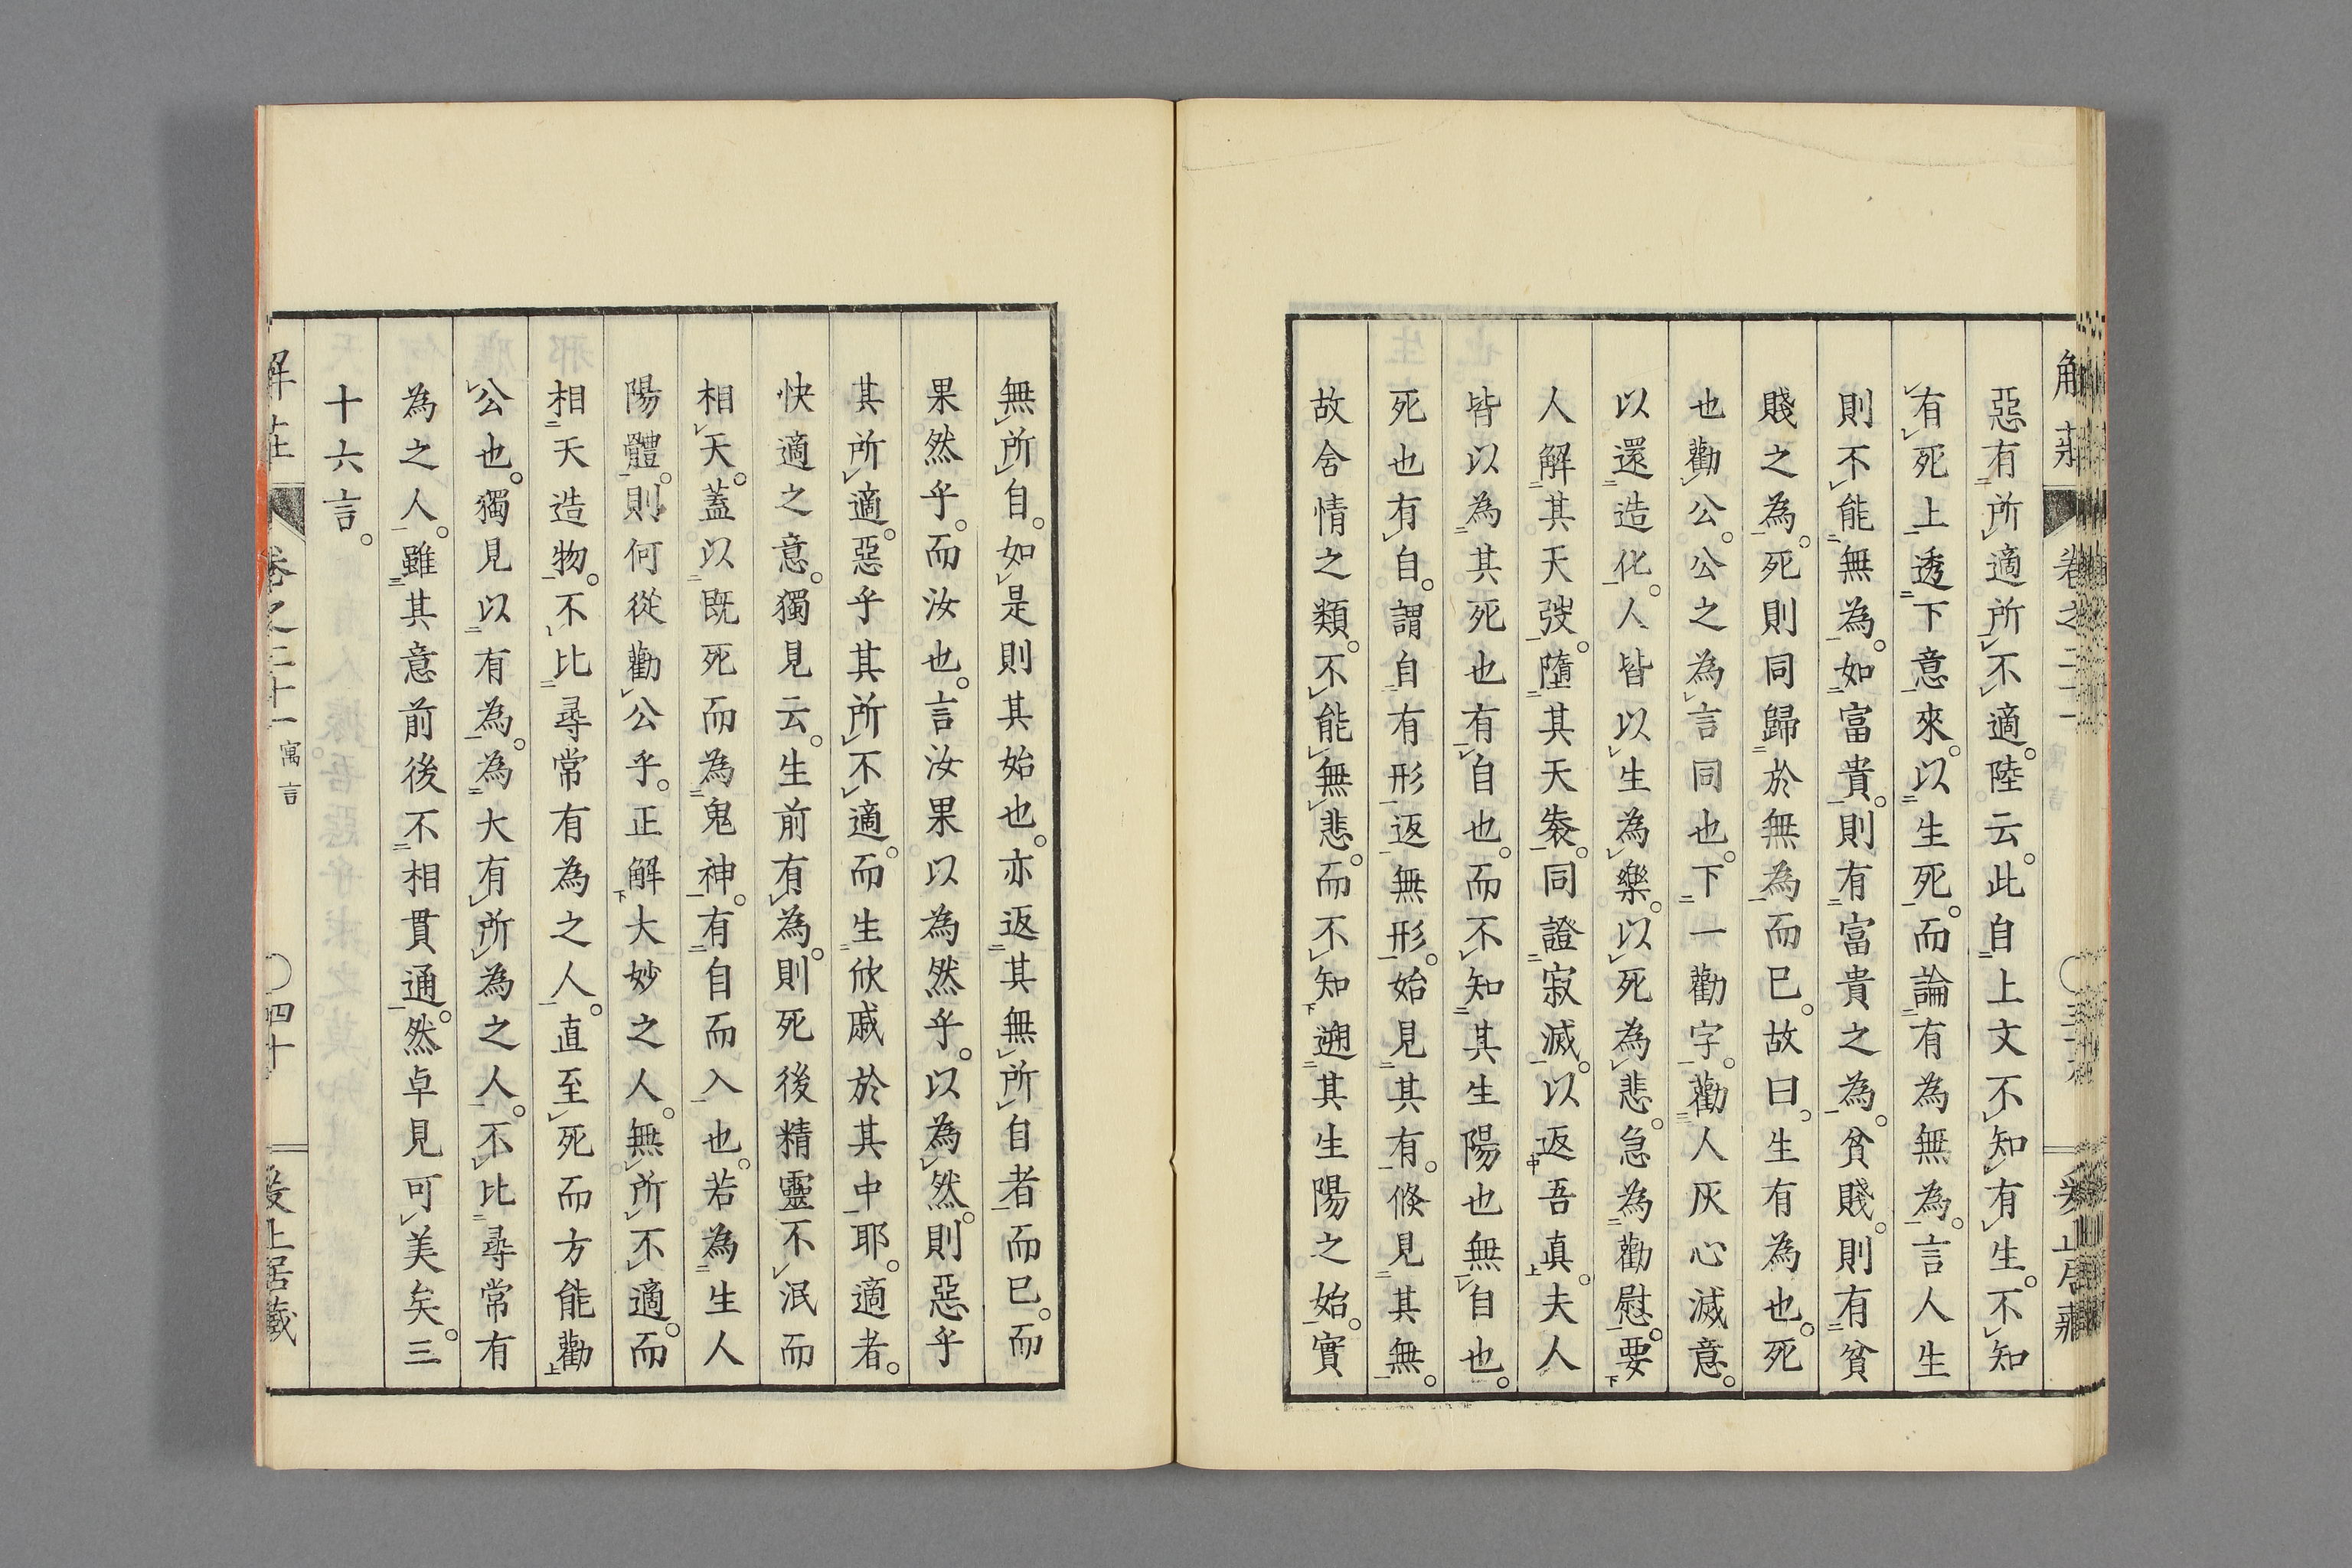 惡有所適所不適。陸云。此自上文不知有生。不知
有死上透下意來。以生死。而論有為無為。言人生
則不能無為。如富貴。則有富貴之為。貧賤。則有貧
賤之為。死則同歸於無為而已。故曰。生有為也。死
也勸公。公之為言同也。下一勸字。勸人灰心滅意。
以還造化。人皆以生為樂。以死為悲。急為勸慰。要
人解其天弢。墮其天袠。同證寂滅。以返吾真。夫人
皆以為其死也有自也。而不知其生陽也無自也。
死也有自。謂自有形返無形。始見其有。倏見其無。
故舍情之類。不能無悲。而不知遡其生陽之始。實
無所自。如是則其始也。亦返其無所自者而已。而
果然乎。而汝也。言汝果以為然乎。以為然。則惡乎
其所適。惡乎其所不適。而生欣戚於其中耶。適者。
快適之意。獨見云。生前有為。則死後精靈不泯而
相天。蓋以既死而為鬼神。有自而入也。若為生人
陽體。則何從勸公乎。正解大妙之人。無所不適。而
相天造物。不比尋常有為之人。直至死而方能勸
公也。獨見以有為。為大有所為之人。不比尋常有
為之人。雖其意前後不相貫通。然卓見可美矣。三
十六言。
解莊 卷之二十一 寓言 〇四十